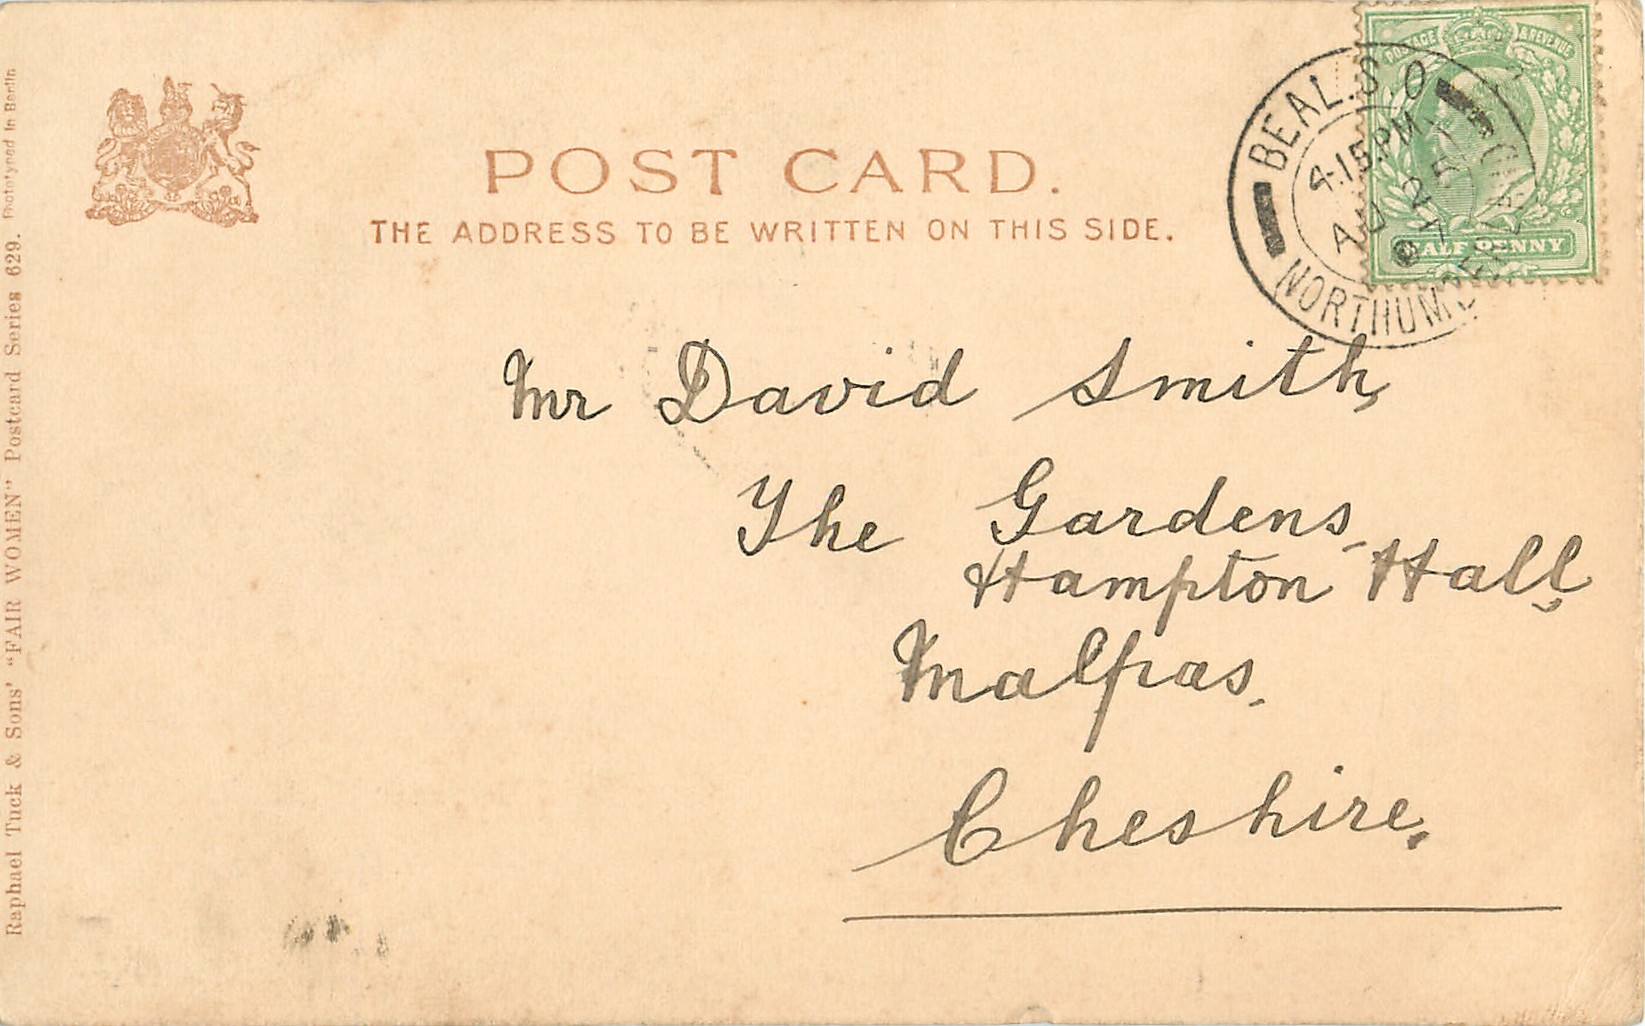 POST CARD.
THE ADDRESS TO BE WRITTEN ON THIS SIDE.
POSTAGE & REVENUE
HALF PENNY
BEAL.S.O
4.15PM
AU 25
NORTHUMBERLAND
Mr David Smith,
The Gardens
Hampton Hall,
Malpas.
Cheshire.
Raphael Tuck & Sons' "FAIR WOMEN" Postcard Series 629. Phototyped in Berlin